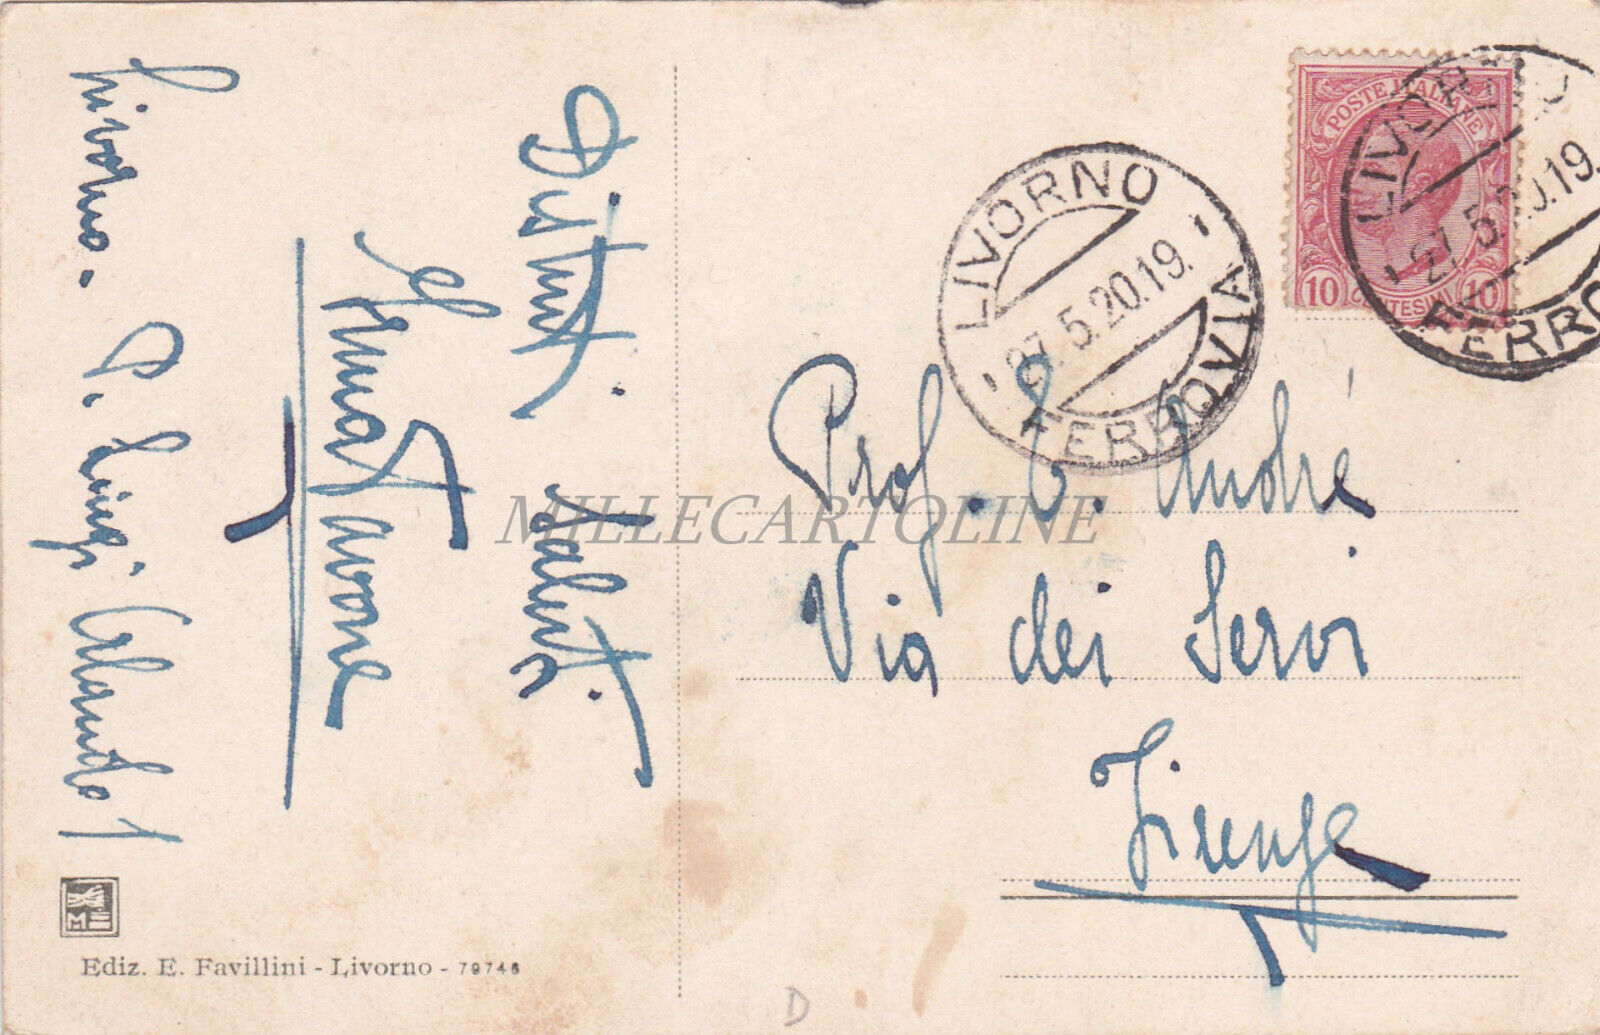 Distinti saluti.
Livorno. P. Luigi Orlando 1
LIVORNO
27.5.20.19.
FERROVIA
POSTE ITALIANE
10 CENTESIMI 10
LIVORNO
27.5.20.19.
FERRO
Prof. E. André
Via dei Servi
Firenze
MILLECARTOLINE
ME
Ediz. E. Favillini - Livorno - 79746
D